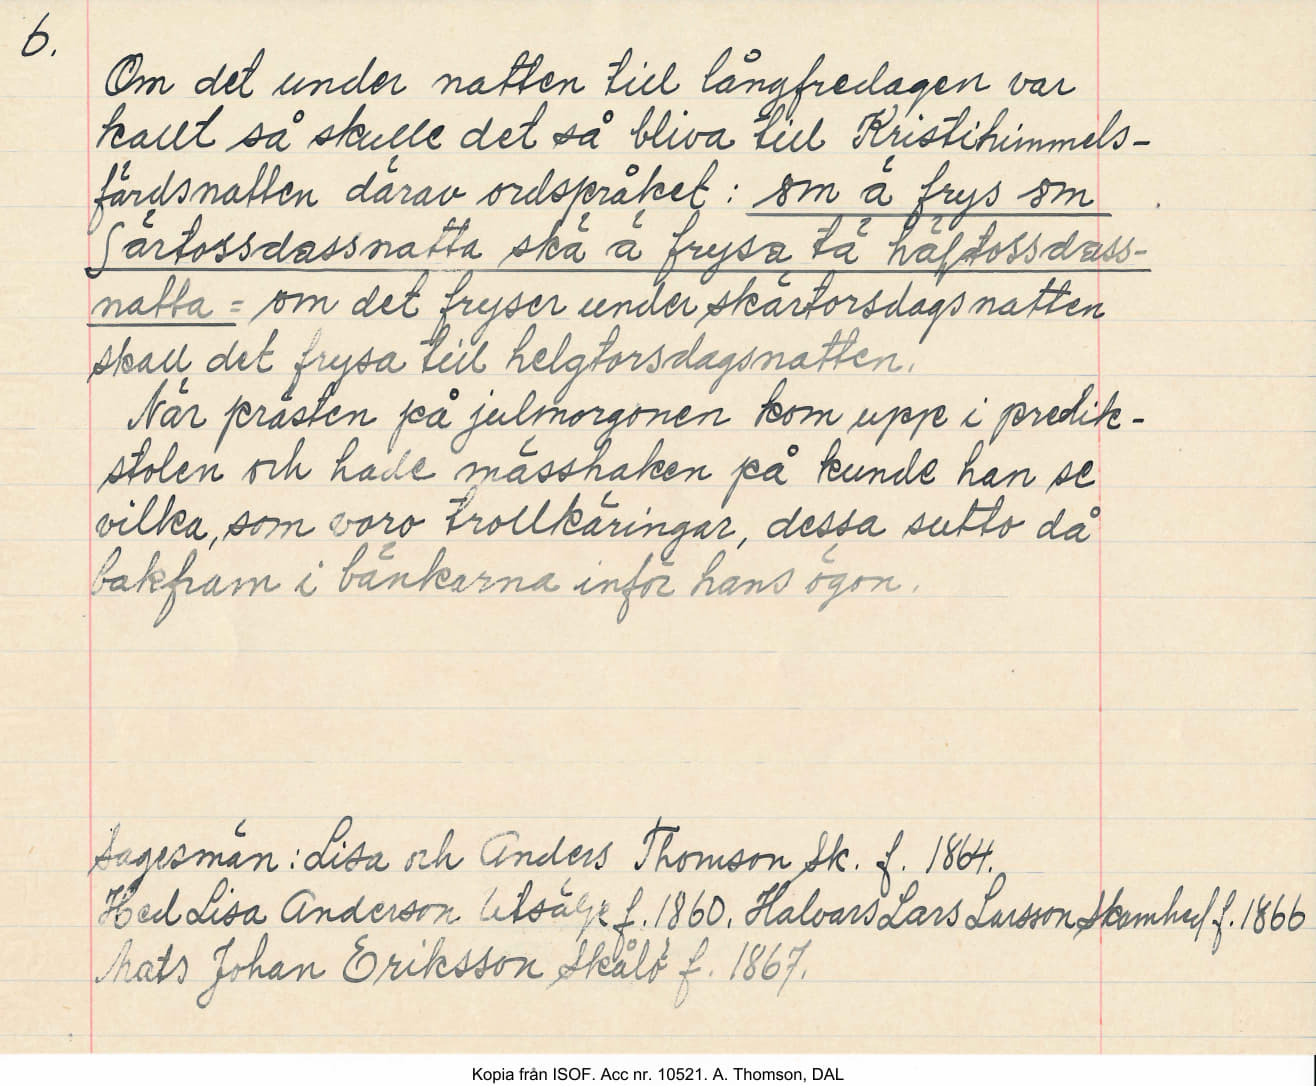 6.
Om det under natten till långfredagen var
kallt så skulle det så bliva till Kristihimmels-
färdsnatten därav ordspråket: om ä frys om
särtossdassnatta skä ä frysa tä häftossdass-
natta = om det fryser under skärtorsdagsnatten
skall det frysa till helgtorsdagsnatten.
När prästen på julmorgonen kom upp i predik-
stolen och hade mässhaken på kunde han se
vilka, som voro trollkäringar, dessa sutto då
bakfram i bänkarna inför hans ögon.
Sagesmän: Lisa och Anders Thomson Sk. f. 1864.
Hed Lisa Anderson Utsälje f. 1860. Halvars Lars Larsson Skamhed f. 1866
Mats Johan Eriksson Skålö f. 1867.
Kopia från ISOF. Acc nr. 10521. A. Thomson, DAL